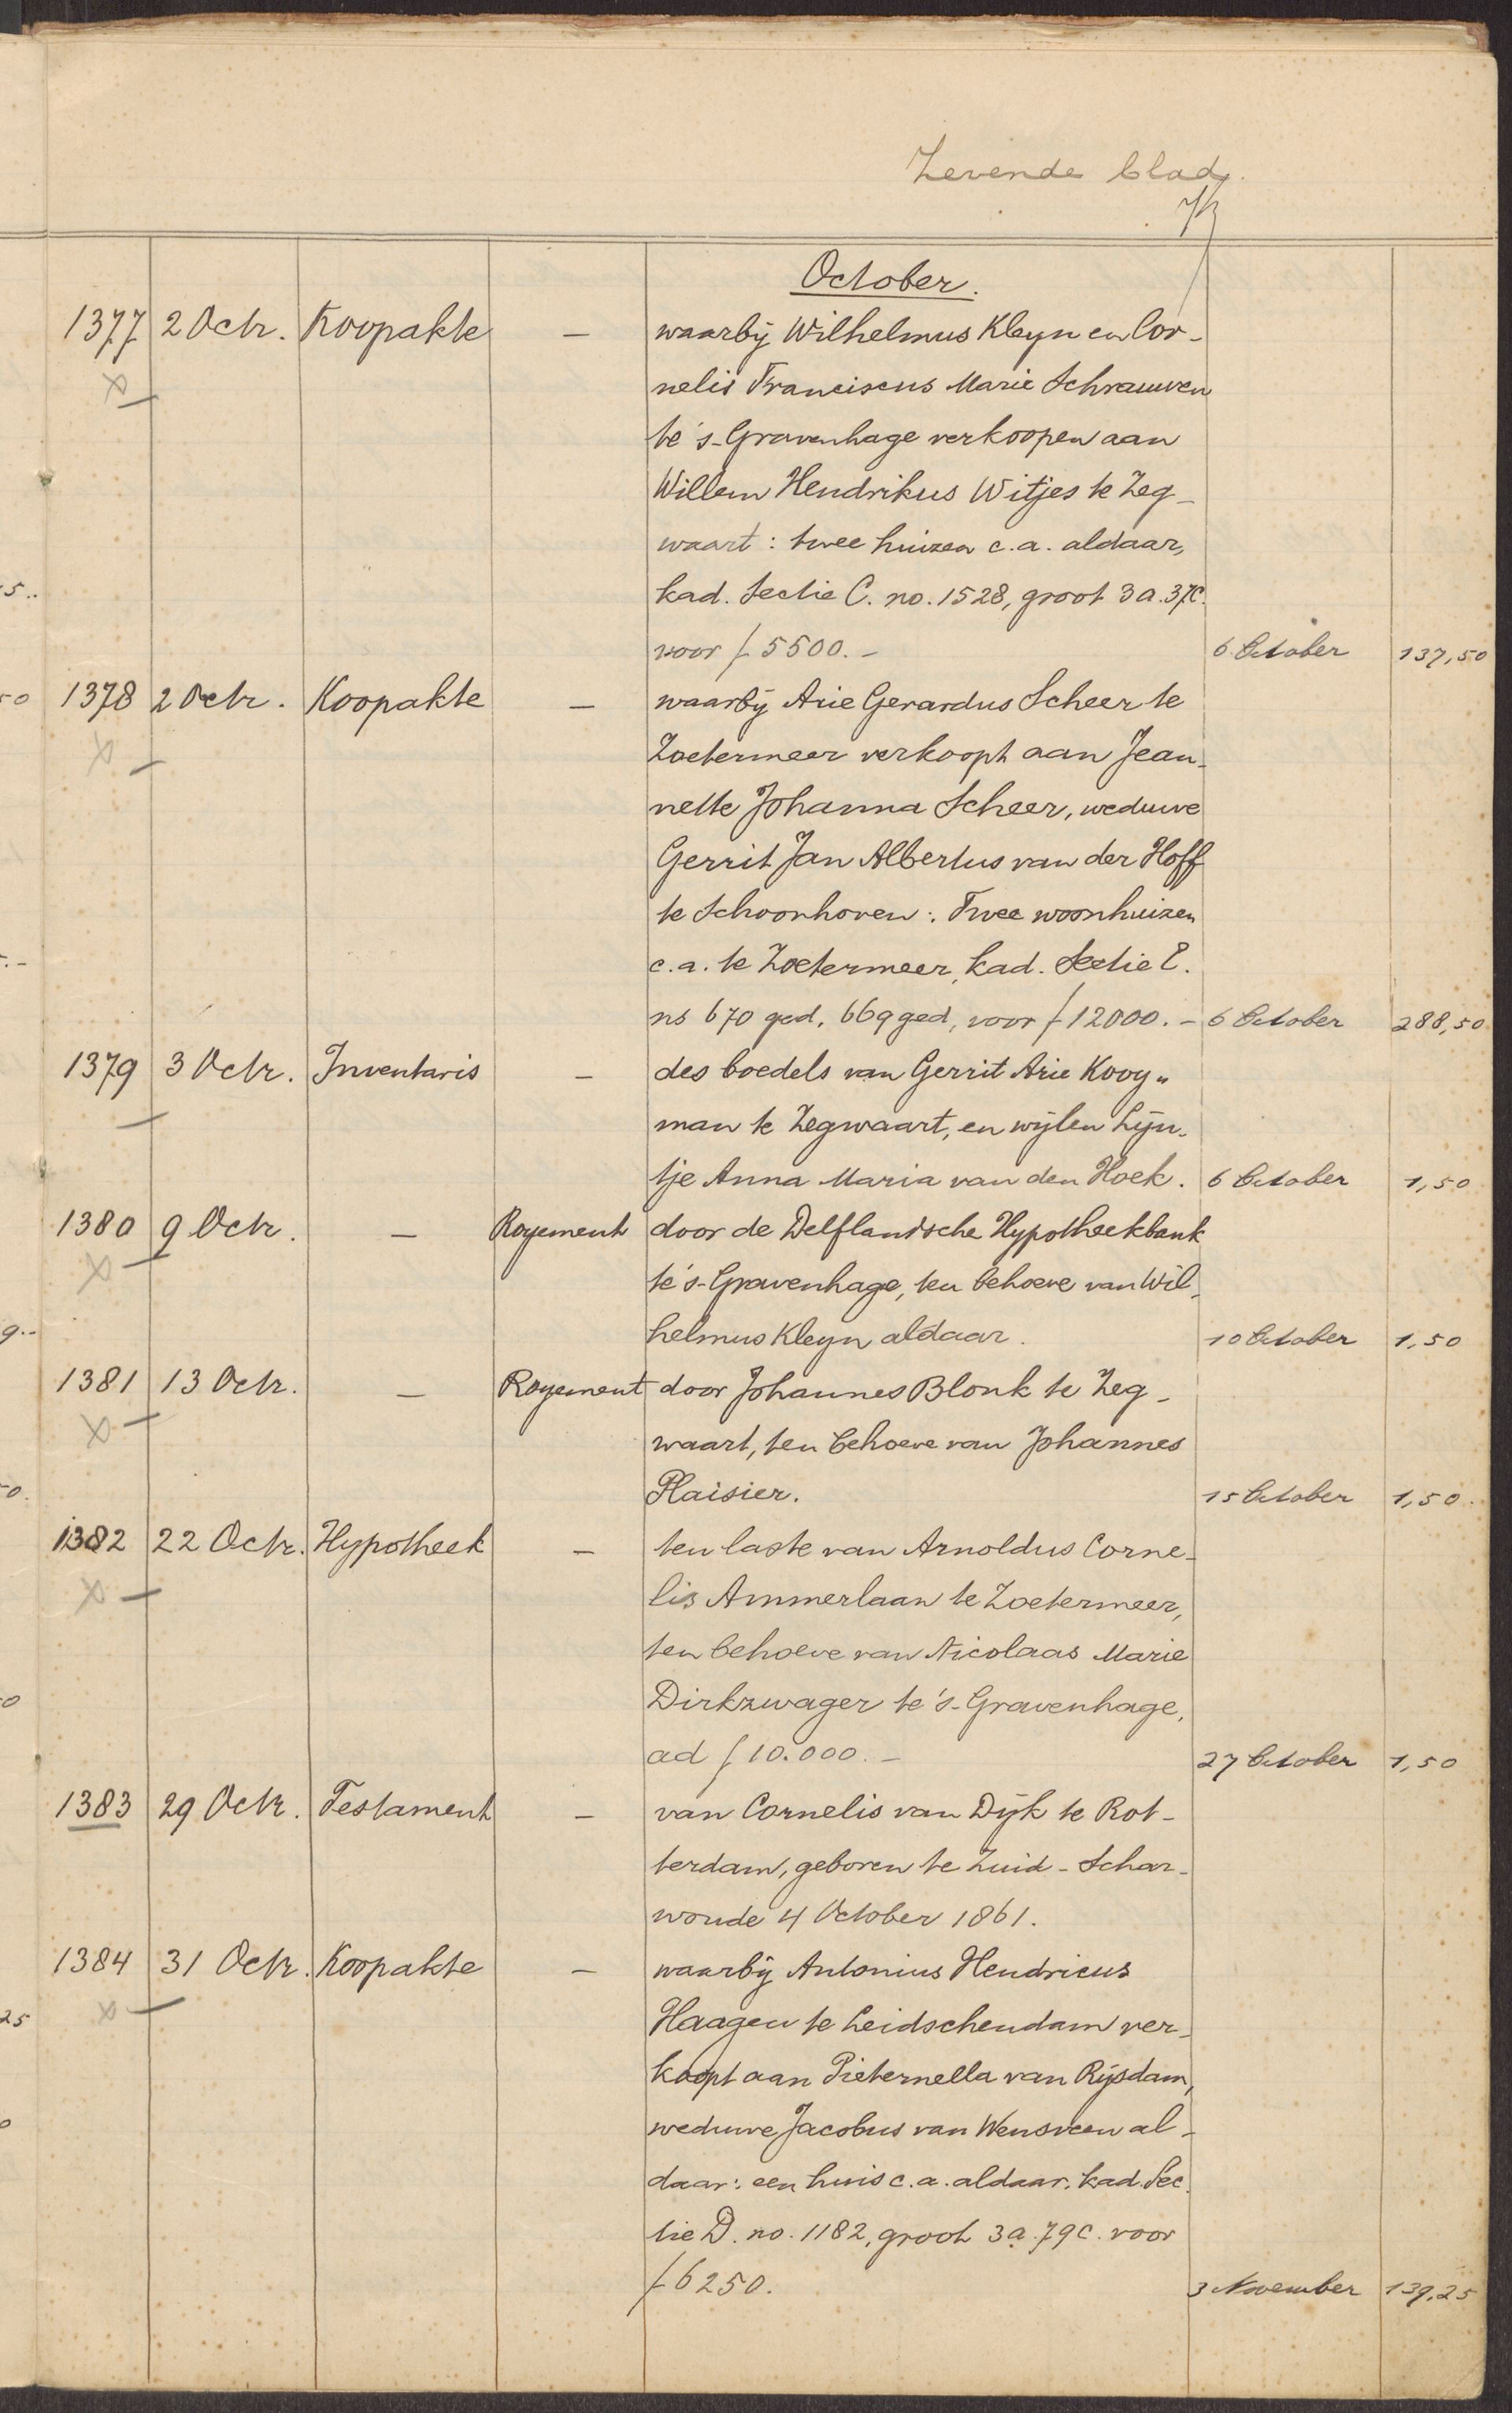 Zevende blad.
October.
1377 2 Octr. Koopakte — waarbij Wilhelmus Kleyn en Cor-
nelis Franciscus Marie Schrauwen
te 's-Gravenhage verkoopen aan
Willem Hendrikus Witjes te Zeg-
waart: twee huizen c.a. aldaar,
kad. Sectie C. no. 1528, groot 3 a. 37 c.
voor f 5500.- 6 October 137,50
50 1378 2 Octr. Koopakte — waarbij Arie Gerardus Scheer te
Zoetermeer verkoopt aan Jean-
nette Johanna Scheer, weduwe
Gerrit Jan Albertus van der Hoff
te Schoonhoven: Twee woonhuizen
c.a. te Zoetermeer, kad. Sectie E.
ns 670 ged. 669 ged, voor f 12000.- 6 October 288,50
1379 3 Octr. Inventaris — des boedels van Gerrit Arie Kooy-
man te Zegwaart, en wijlen Lijn-
tje Anna Maria van den Hoek. 6 October 1,50
1380 9 Octr. — Royement door de Delflandsche Hypotheekbank
te 's-Gravenhage, ten behoeve van Wil-
helmus Kleyn aldaar. 10 October 1,50
1381 13 Octr. — Royement door Johannes Blonk te Zeg-
waart, ten behoeve van Johannes
Plaisier. 15 October 1,50
1382 22 Octr. Hypotheek — ten laste van Arnoldus Corne-
lis Ammerlaan te Zoetermeer,
ten behoeve van Nicolaas Marie
Dirkzwager te 's-Gravenhage,
ad f 10.000.- 27 October 1,50
1383 29 Octr. Testament — van Cornelis van Dijk te Rot-
terdam, geboren te Zuid-Schar-
woude 4 October 1861.
1384 31 Octr. Koopakte — waarbij Antonius Hendricus
Haagen te Leidschendam ver-
25
koopt aan Pieternella van Rijsdam,
weduwe Jacobus van Wensveen al-
daar: een huis c.a. aldaar, kad. Sec-
tie D. no. 1182, groot 3 a. 79 c. voor
f 6250. 3 November 139,25